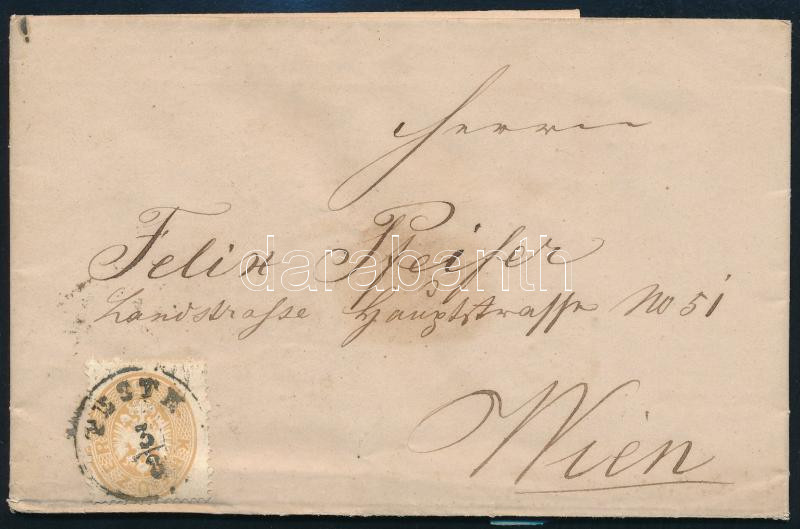 Herrn
Felix Pfeifer
Landstrasse Hauptstrasse No 51
Wien
PESTH
5/8
darabanth